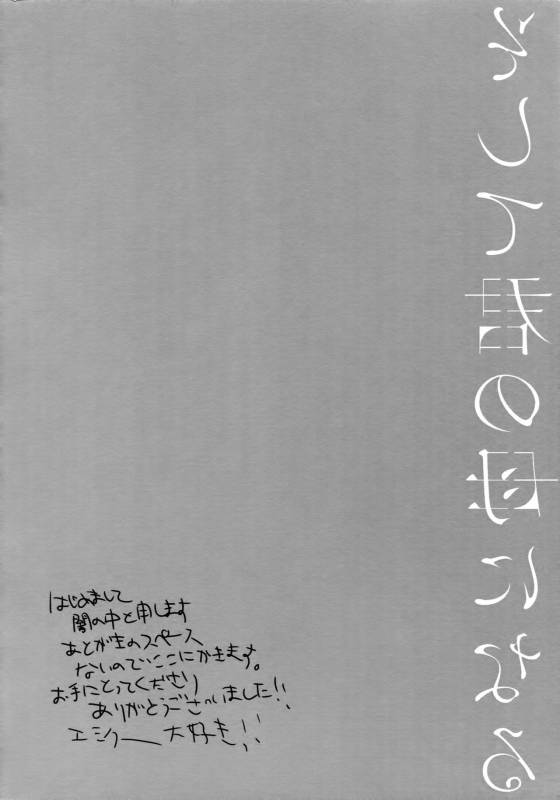 そして君の母になる
はじめまして
闇の中と申します
あとがきのスペース
ないのでここにかきます。
お手にとってくださり
ありがとうございました!!
エシクー大好き!!